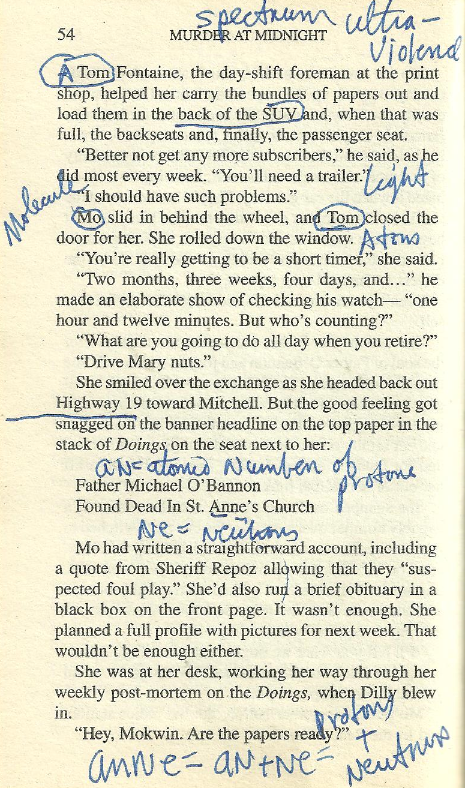 spectrum ultra-
violence
54 MURDER AT MIDNIGHT
A Tom Fontaine, the day-shift foreman at the print
shop, helped her carry the bundles of papers out and
load them in the back of the SUV and, when that was
full, the backseats and, finally, the passenger seat.
"Better not get any more subscribers," he said, as he
did most every week. "You'll need a trailer."
light
"I should have such problems."
Molecule
Mo slid in behind the wheel, and Tom closed the
door for her. She rolled down the window.
Atoms
"You're really getting to be a short timer," she said.
"Two months, three weeks, four days, and..." he
made an elaborate show of checking his watch— "one
hour and twelve minutes. But who's counting?"
"What are you going to do all day when you retire?"
"Drive Mary nuts."
She smiled over the exchange as she headed back out
Highway 19 toward Mitchell. But the good feeling got
snagged on the banner headline on the top paper in the
stack of Doings on the seat next to her:
AN=atomic Number of
protons
Father Michael O'Bannon
Found Dead In St. Anne's Church
Ne = Neutrons
Mo had written a straightforward account, including
a quote from Sheriff Repoz allowing that they "sus-
pected foul play." She'd also run a brief obituary in a
black box on the front page. It wasn't enough. She
planned a full profile with pictures for next week. That
wouldn't be enough either.
She was at her desk, working her way through her
weekly post-mortem on the Doings, when Dilly blew
in.
"Hey, Mokwin. Are the papers ready?"
ANNe = AN+Ne= protons
+
Neutrons